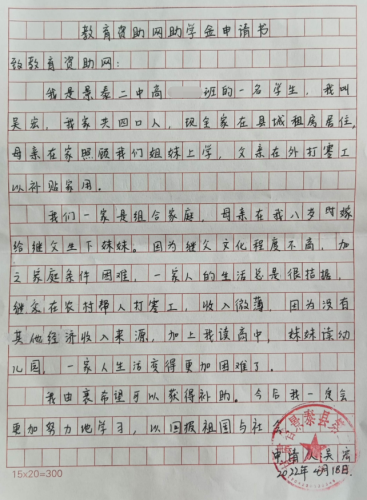 教育资助网助学金申请书
致教育资助网:
我是景泰二中高 班的一名学生,我叫
吴宏,我家共四口人,现全家在县城租房居住,
母亲在家照顾我们姐妹上学,父亲在外打零工
以补贴家用。
我们一家是组合家庭,母亲在我八岁时嫁
给继父生下妹妹。因为继父文化程度不高,加
之家庭条件困难,一家人的生活总是很拮据,
继父在农村帮人打零工,收入微薄,因为没有
其他经济收入来源,加上我读高中,妹妹读幼
儿园,一家人生活变得更加困难了。
我由衷希望可以获得补助。今后我一定会
更加努力地学习,以回报祖国与社会
申请人吴宏
2022年4月18日.
15×20=300